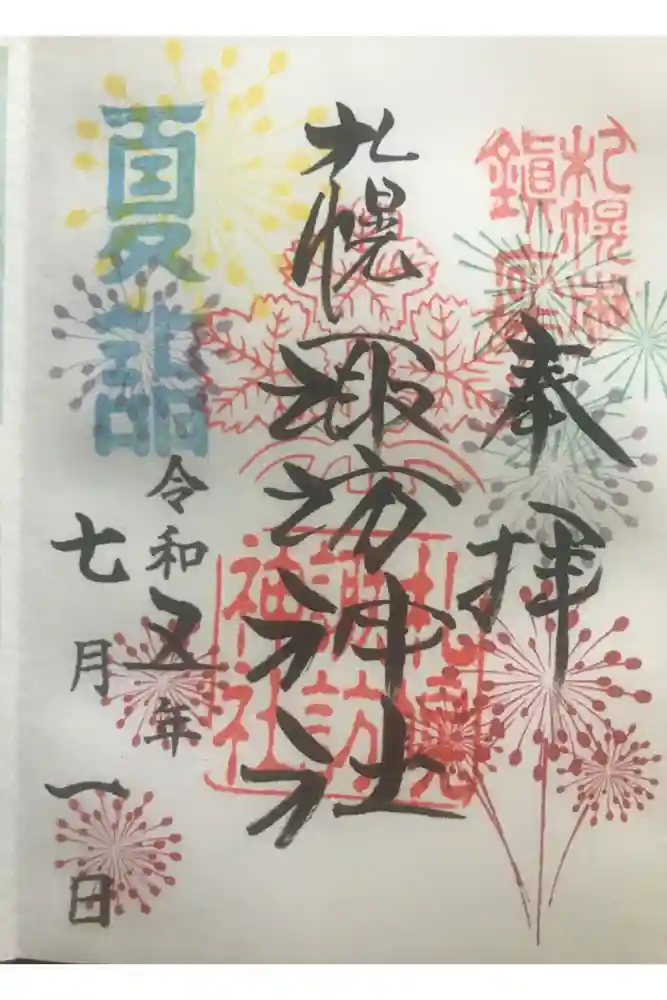 奉拝
札幌諏訪神社
札幌諏訪神社
夏詣
令和五年
七月一日